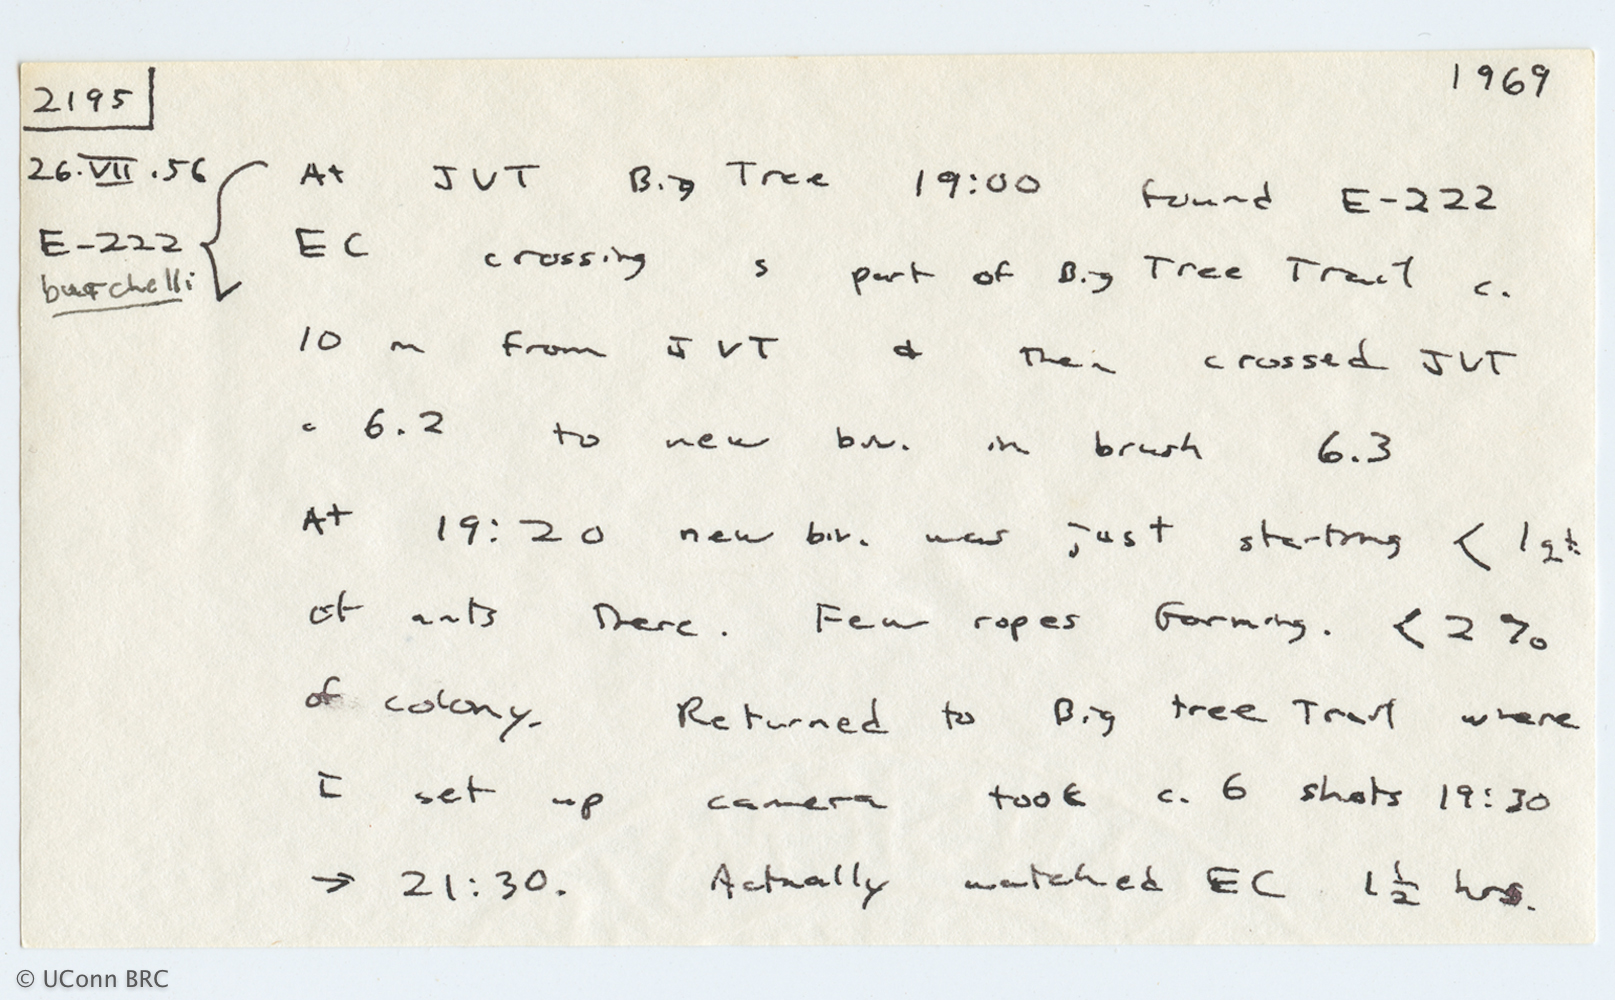 2195
1969
26.VII.56
E-222
burchelli
At JVT Big Tree 19:00 found E-222
EC crossing s part of Big Tree Trail c.
10 m from JVT & then crossed JVT
c 6.2 to new biv. in brush 6.3
At 19:20 new biv. was just starting < 1 qt.
of ants there. Few ropes forming. < 2 %
of colony. Returned to Big tree Trail where
I set up camera took c. 6 shots 19:30
→ 21:30. Actually watched EC 1½ hrs.
© UConn BRC